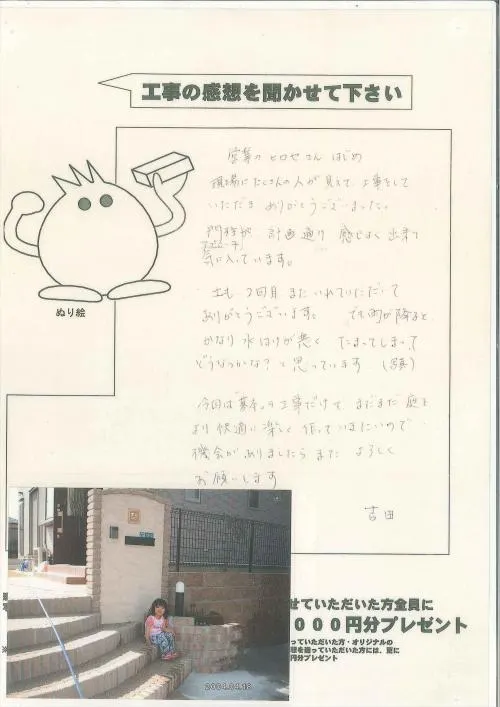 工事の感想を聞かせて下さい
営業の ヒロセさん はじめ
現場にたくさんの人が見えて 工事をして
いただき ありがとうございました。
門柱が 計画通り 感じよく 出来て
気に入っています。
土も 2回目 また いれていただいて
ありがとうございます。 でも雨が降ると
かなり 水はけが悪く たまってしまって
どうなのかな?と思っています (写真)
今回は基本の工事だけで、まだまだ 庭を
より快適に楽しく 作っていきたいので
機会がありましたら また よろしく
お願いします
吉田
ぬり絵
吉田
2004.04.18
せていただいた方全員に
000円分プレゼント
っていただいた方・オリジナルの
想を送っていただいた方には、更に
円分プレゼント